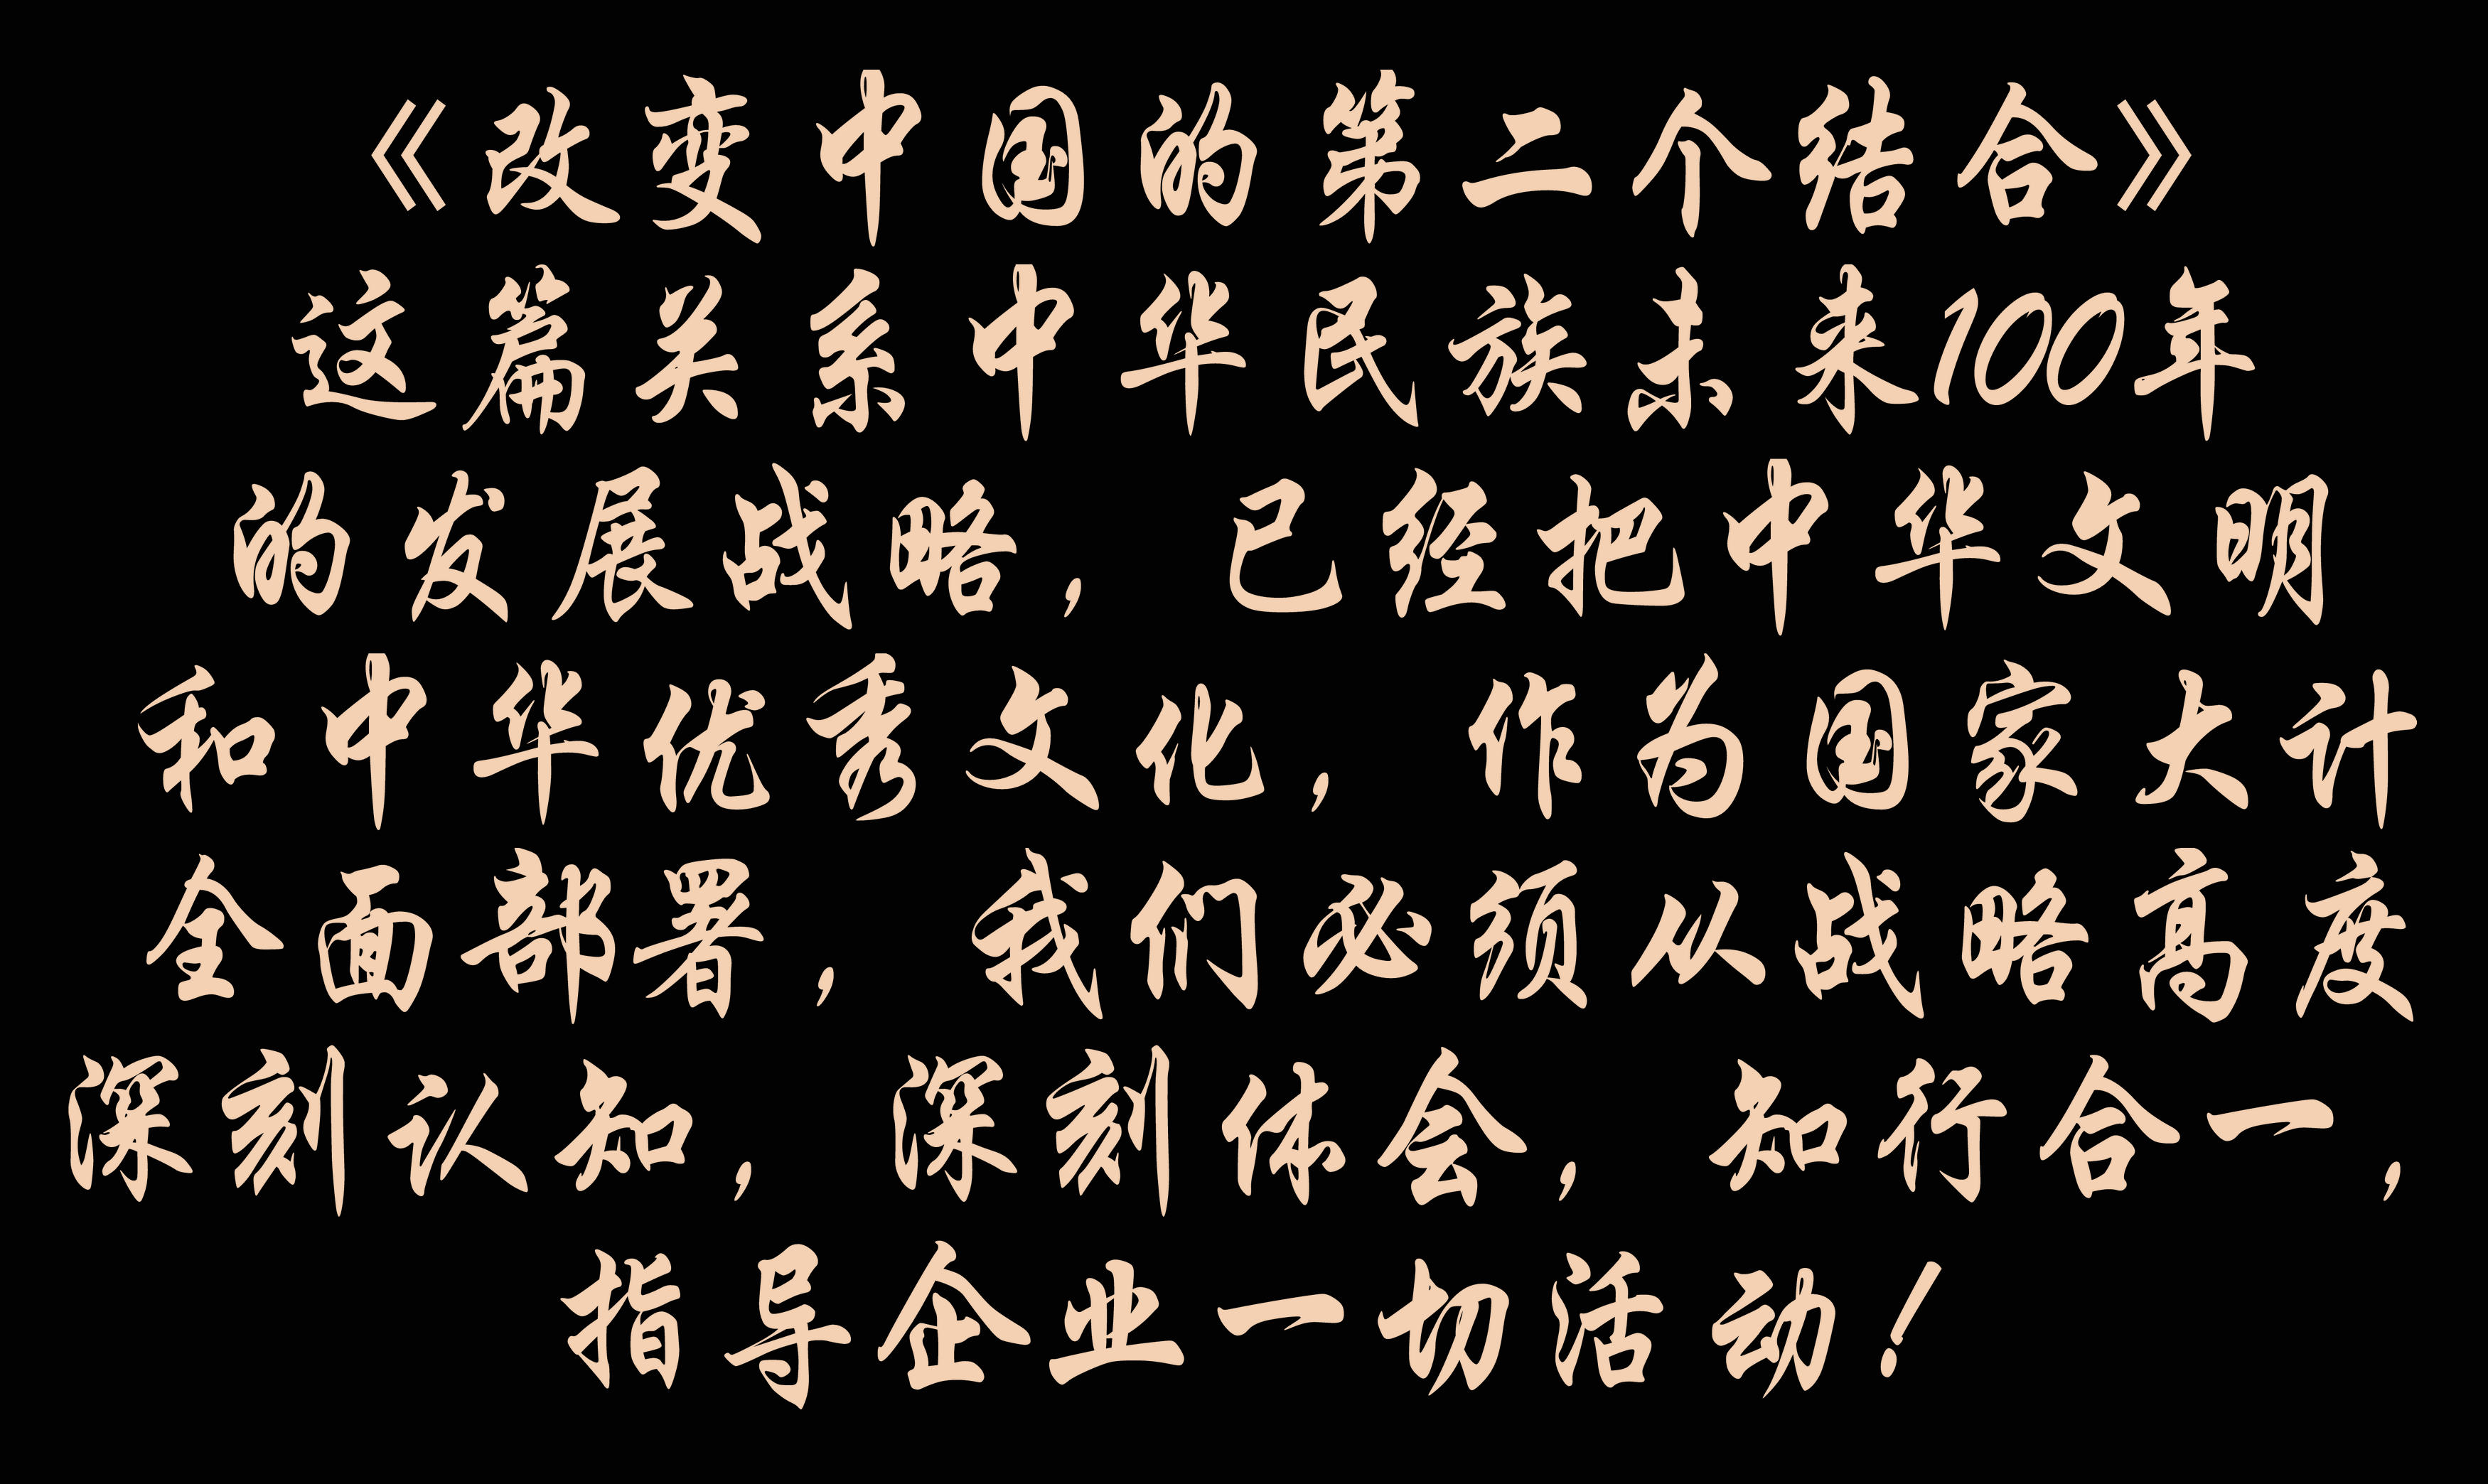 《改变中国的第二个结合》
这篇关系中华民族未来100年
的发展战略，已经把中华文明
和中华优秀文化，作为国家大计
全面部署，我们必须从战略高度
深刻认知，深刻体会，知行合一，
指导企业一切活动！